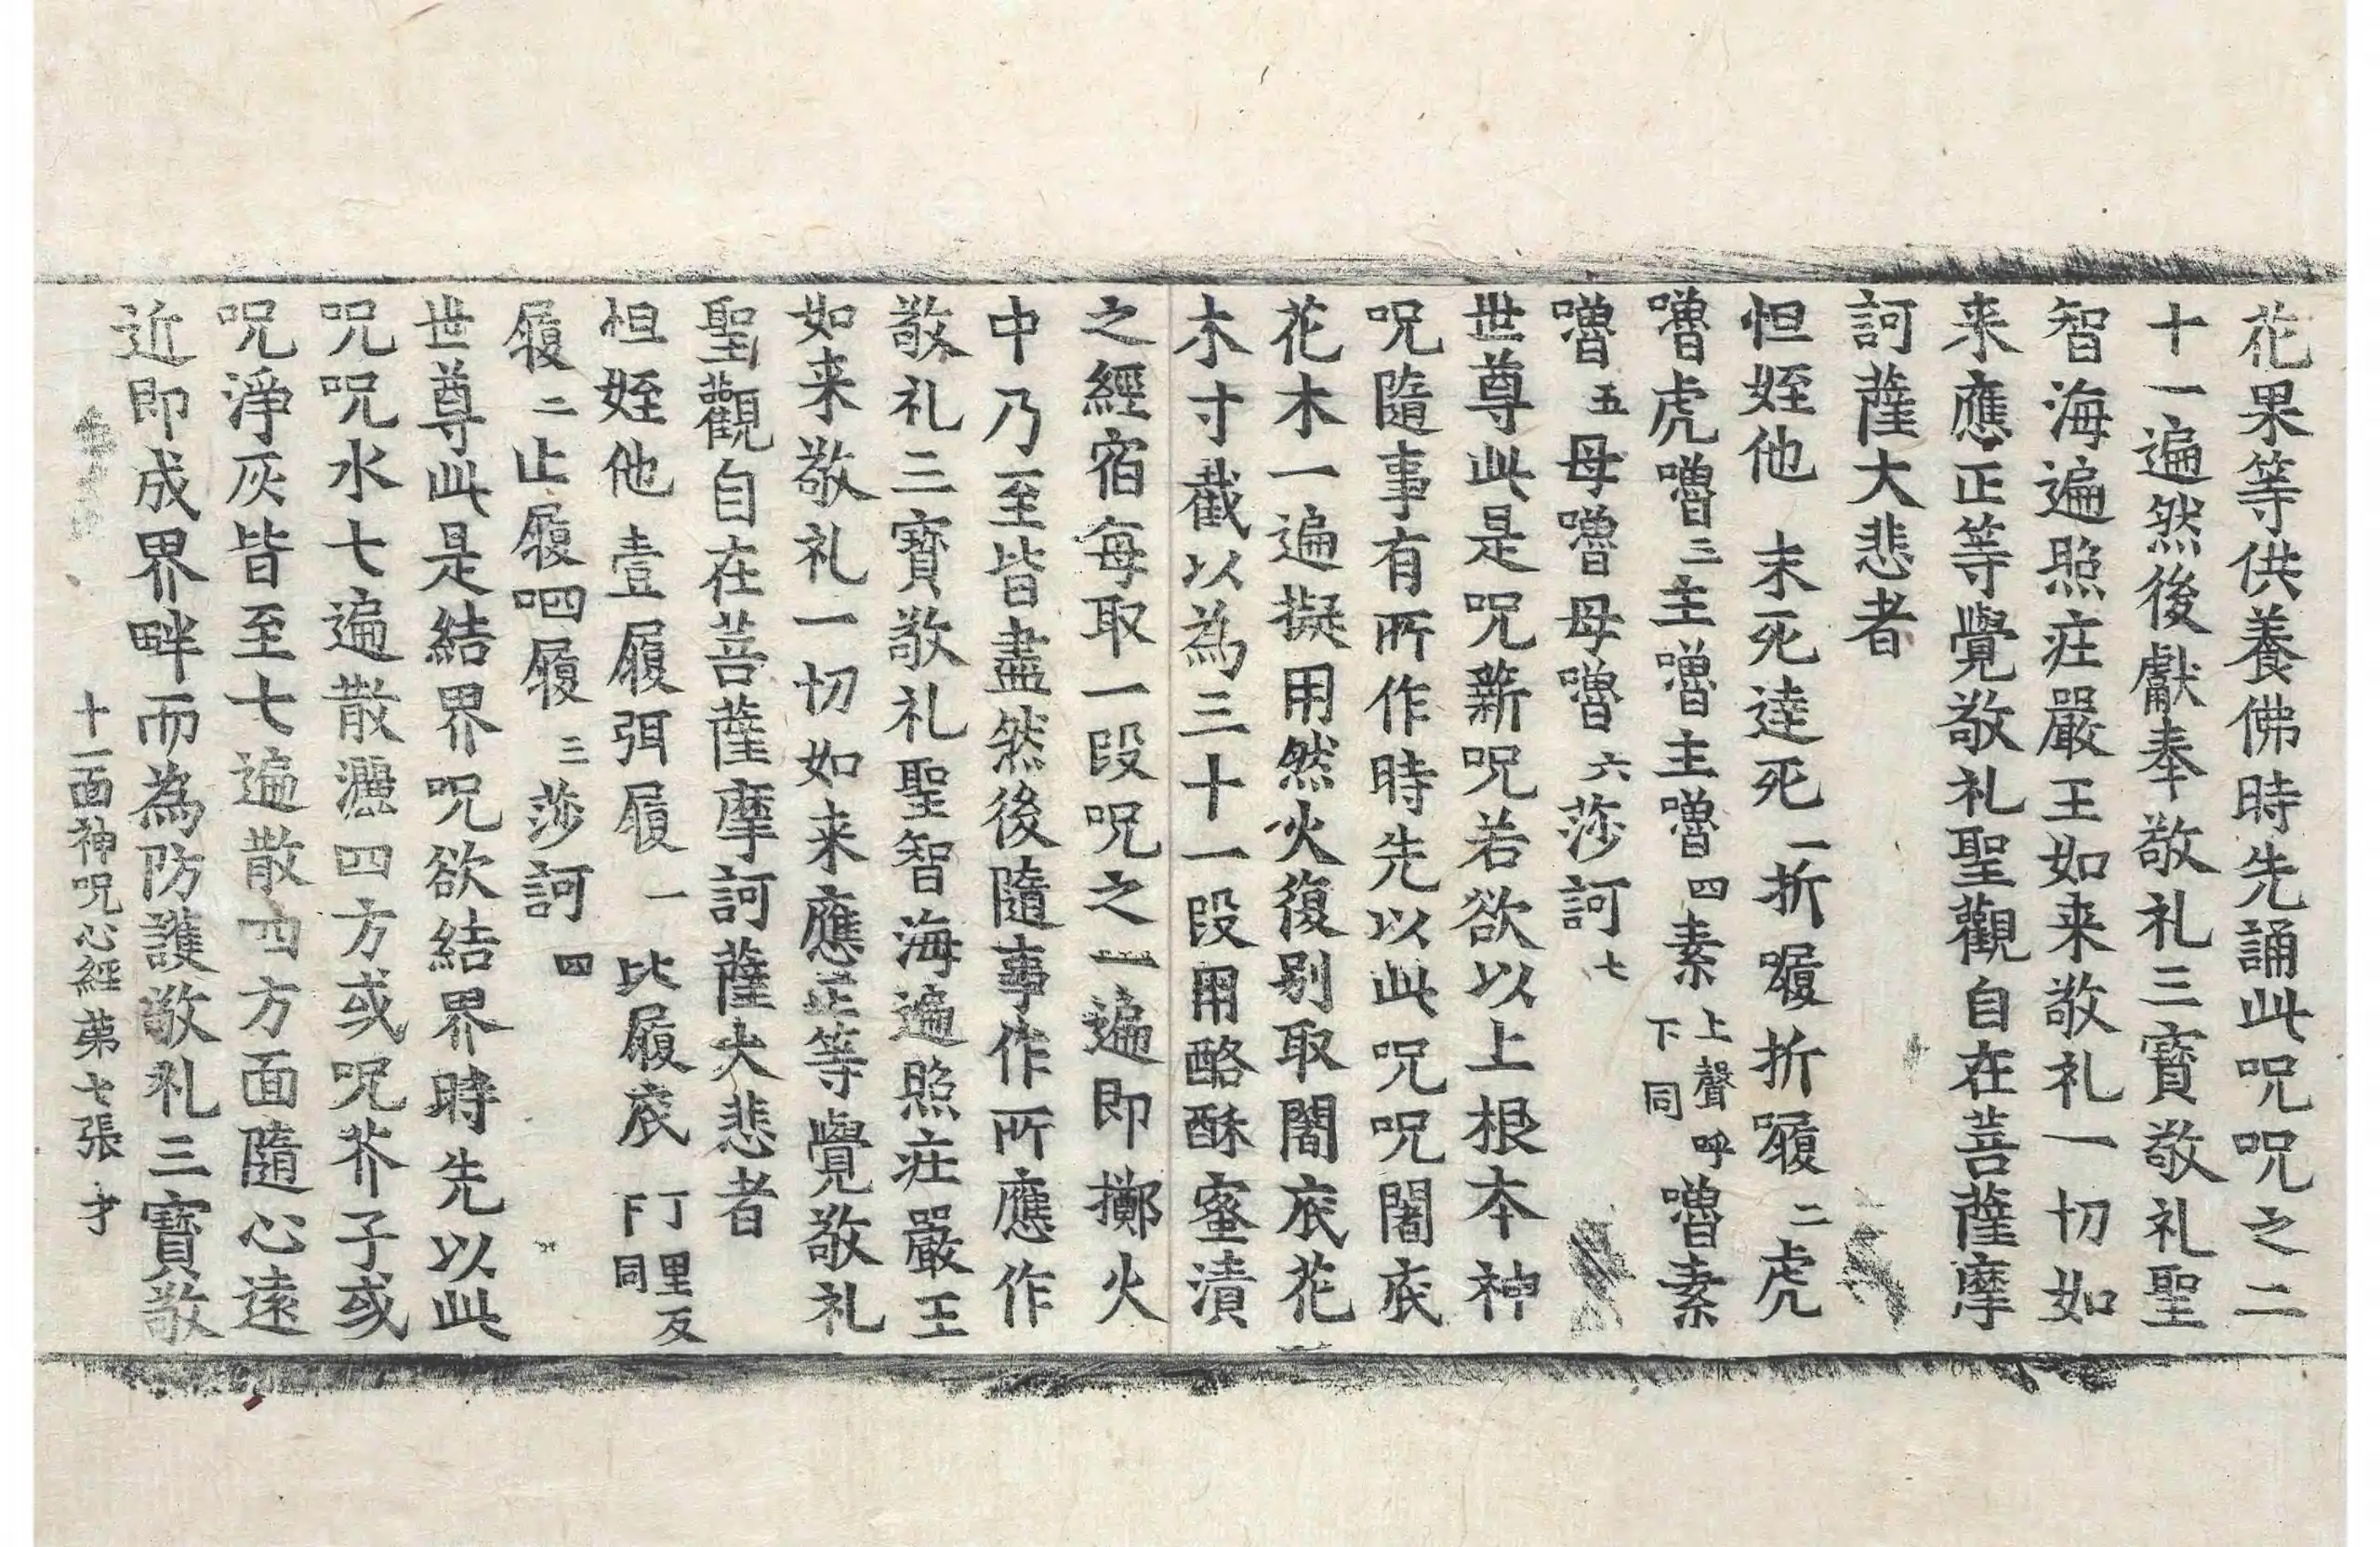 花果等供養佛時先誦此呪呪之二
十一遍然後獻奉敬礼三寶敬礼聖
智海遍照莊嚴王如来敬礼一切如
来應正等覺敬礼聖觀自在菩薩摩
訶薩大悲者
怛姪他 末死達死一折㘑折㘑二虎
嚕虎嚕三主嚕主嚕四素上聲呼下同嚕素
嚕五母嚕母嚕六莎訶七
世尊此是呪薪呪若欲以上根本神
呪隨事有所作時先以此呪呪闍底
花木一遍擬用然火復别取闍底花
木寸截以為三十一段用酪酥蜜漬
之經宿每取一段呪之一遍即擲火
中乃至皆盡然後隨事作所應作
敬礼三寶敬礼聖智海遍照莊嚴王
如来敬礼一切如来應正等覺敬礼
聖觀自在菩薩摩訶薩大悲者
怛姪他壹履弭履一比履底丁里反下同
履二止履呬履三莎訶四
世尊此是結界呪欲結界時先以此
呪呪水七遍散灑四方或呪芥子或
呪淨灰皆至七遍散四方面隨心遠
近即成界畔而為防護敬礼三寶敬
十一面神呪心經第七張 才